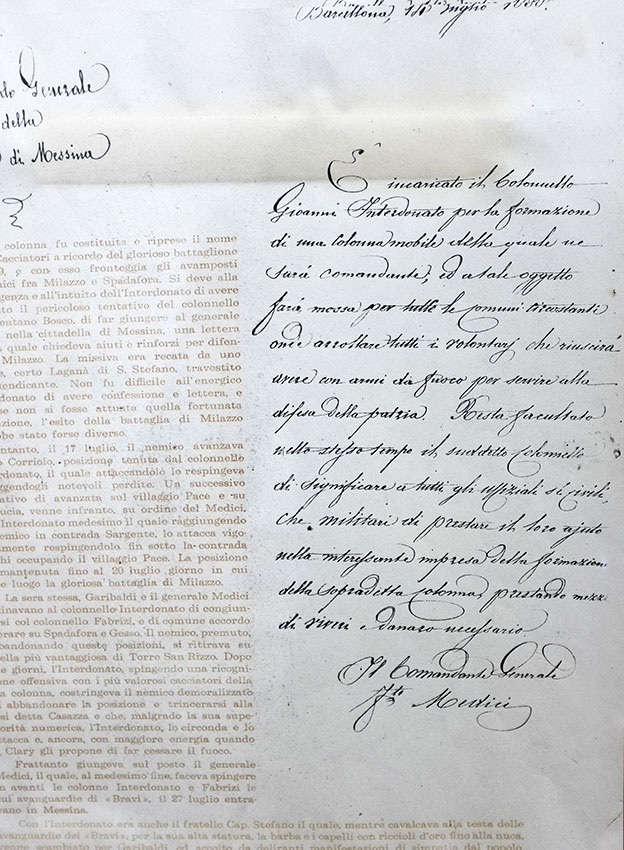 (Barcellona, 1
Generale
della
di Messina
È incaricato il Colonnello
Gioanni Interdonato per la formazione
di una Colonna mobile della quale ne
sarà comandante, ed a tale oggetto
farà mossa per tutte le comuni circostanti
onde arrollare tutti i volontarj che riuscirà
avere con armi da fuoco per servire alla
difesa della patria. Resta facultato
nello stesso tempo il suddetto Colonnello
di significare a tutti gli uffiziali sì civili,
che militari di prestare il loro ajuto
nella interessante impresa della formazion
della sopradetta colonna, prestando mezz
di viveri e danaro necessario
Il Comandante Generale
Medici
colonna fu costituita e riprese il nome
acciatori a ricordo del glorioso battaglione
9, e con esso fronteggia gli avamposti
ici fra Milazzo e Spadafora. Si deve alla
genza e all'intuito dell'Interdonato di avere
to il pericoloso tentativo del colonnello
entano Bosco, di far giungere al generale
nella cittadella di Messina, una lettera
quale chiedeva aiuti e rinforzi per difen-
Milazzo. La missiva era recata da uno
e, certo Laganà di S. Stefano, travestito
endicante. Non fu difficile all'energico
donato di avere confessione e lettera, e
se non si fosse attuata quella fortunata
azione, l'esito della battaglia di Milazzo
bbe stato forse diverso.
ntanto, il 17 luglio, il nemico avanzava
Corriolo, posizione tenuta dal colonnello
rdonato, il quale attaccandolo lo respingeva
ggendogli notevoli perdite. Un successivo
ativo di avanzata sul villaggio Pace e su
ucia, venne infranto, su ordine del Medici,
Interdonato medesimo il quale raggiungendo
emico in contrada Sargente, lo attacca vigo-
lmente respingendolo fin sotto la contrada
hi occupando il villaggio Pace. La posizione
mantenuta fino al 20 luglio giorno in cui
e luogo la gloriosa battaglia di Milazzo.
La sera stessa, Garibaldi e il generale Medici
inavano al colonnello Interdonato di congiun-
si col colonnello Fabrizi, e di comune accordo
erare su Spadafora e Gesso. Il nemico, premuto,
bandonando questo posizioni, si ritirava su
ella più vantaggiosa di Torre San Rizzo. Dopo
e giorni, l'Interdonato, spingendo una ricogni-
ne offensiva con i più valorosi cacciatori della
a colonna, costringeva il nemico demoralizzato
abbandonare la posizione e trincerarsi alla
si detta Casazza e che, malgrado la sua supe-
orità numerica, l'Interdonato, lo circonda e lo
ttacca e, ancora, con maggiore energia quando
Clary gli propone di far cessare il fuoco.
Frattanto giungeva sul posto il generale
Medici, il quale, al medesimo fine, faceva spingere
avanti le colonne Interdonato e Fabrizi le
cui avanguardie di «Bravi», il 27 luglio entra-
vano in Messina.
Con l'Interdonato era anche il fratello Cap. Stefano il quale, mentre cavalcava alla testa delle
avanguardie dei «Bravi», per la sua alta statura, la barba e i capelli con riccioli d'oro fino alla nuca,
venne scambiato per Garibaldi, ed accolto da deliranti manifestazioni di simpatia dal popolo